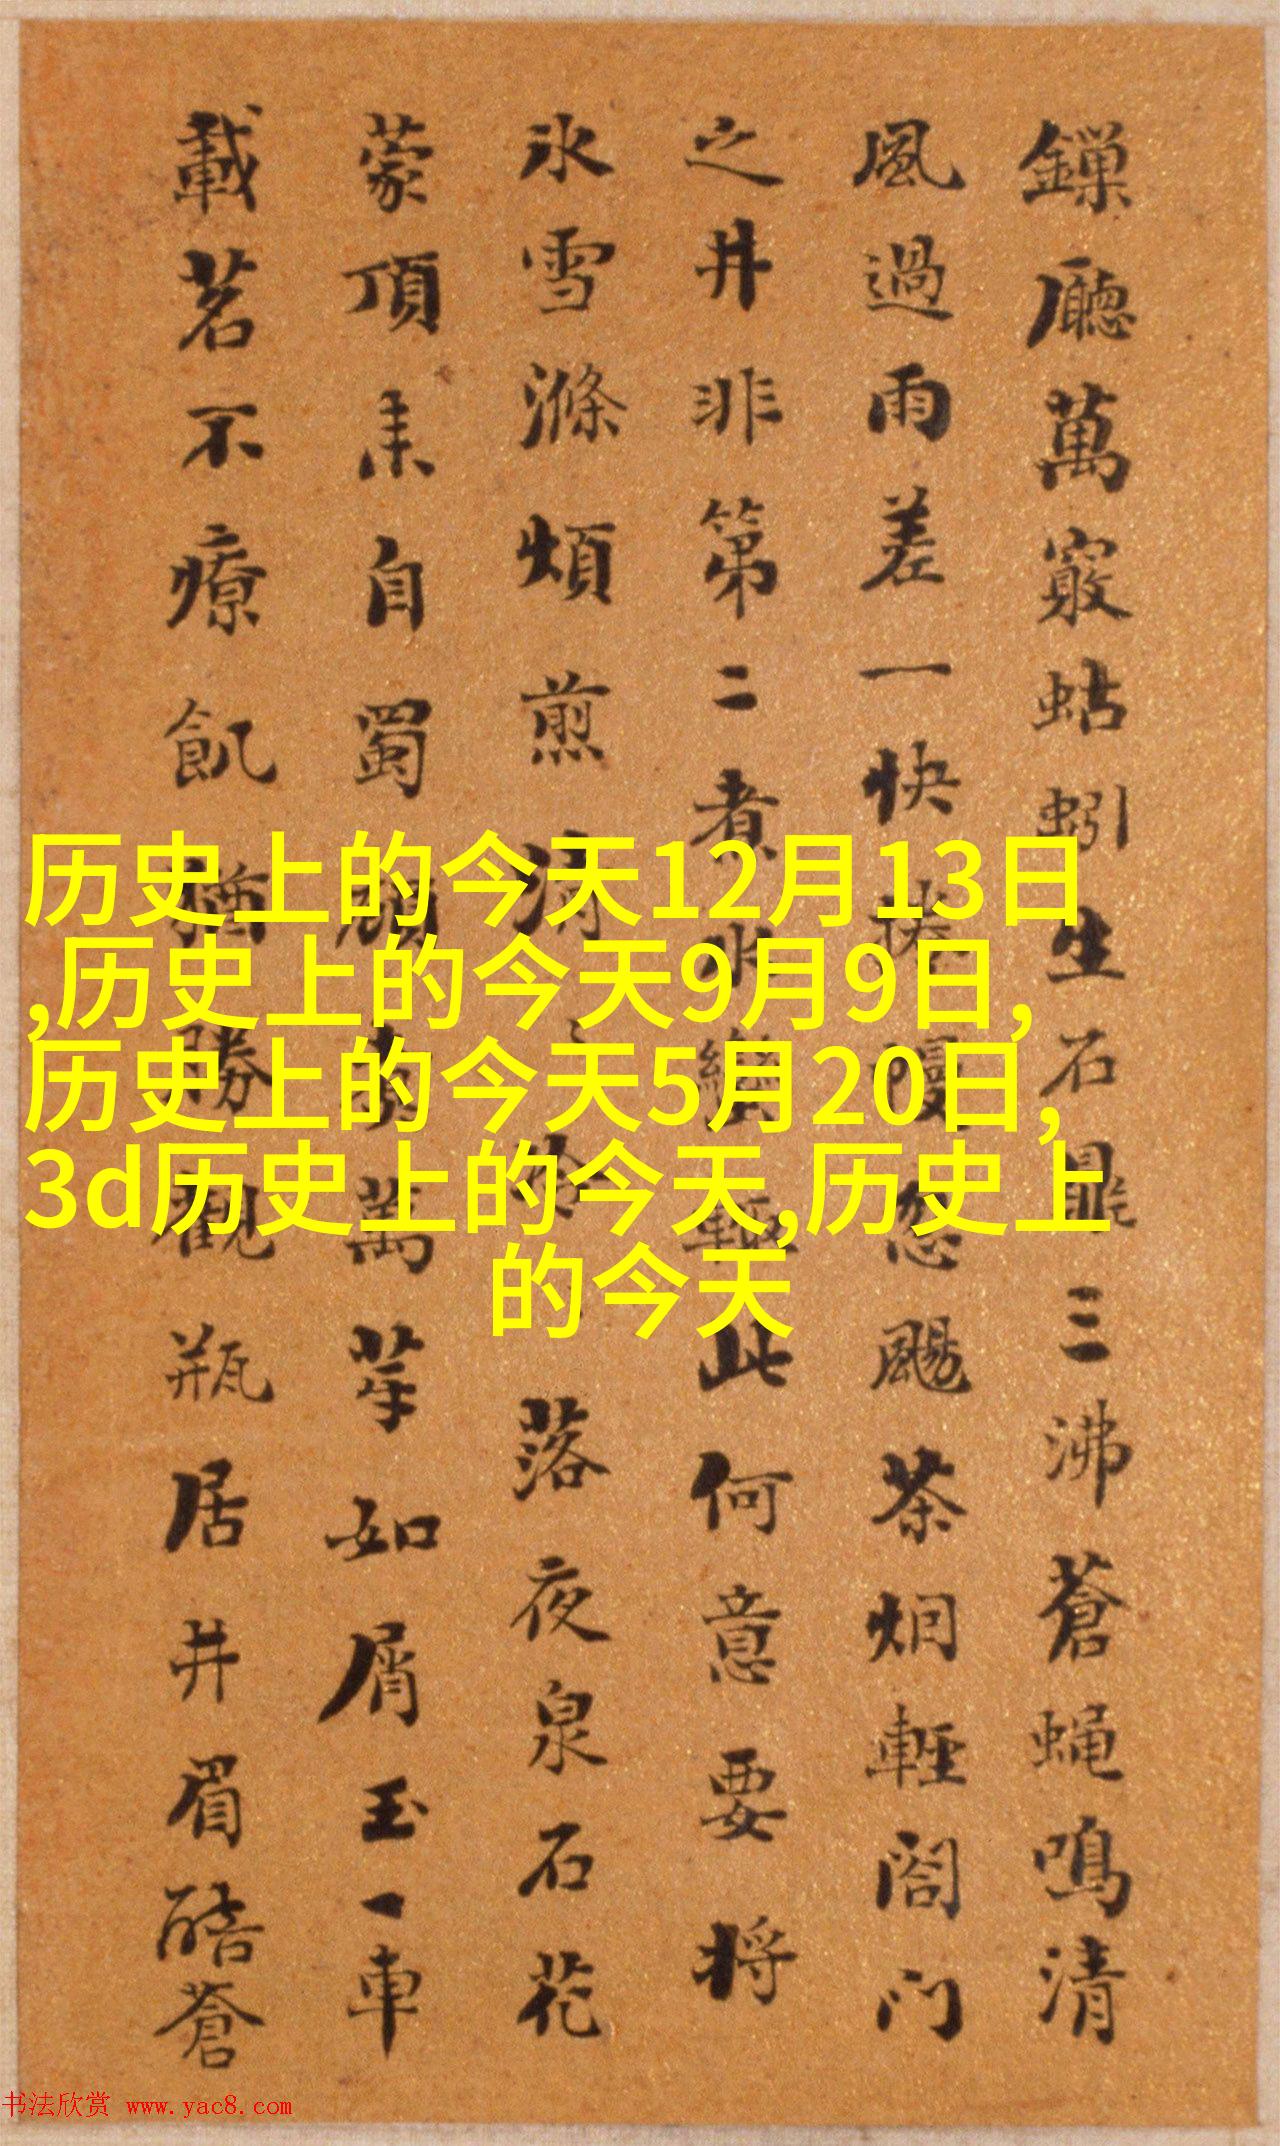 鏁廳萬竅蛄蚓生石鼎三沸蒼蝇鳴清
風過雨差一快忽颺茶烟輕閤门
之井非第二煮水此何意要将
氷雪滌煩煎落夜泉石花
蒙頂来自蜀萬芽如屑玉一車
載茗不療飢猶勝觀瓶居井眉酷蒼
历史上的今天12月13日
,历史上的今天9月9日,
历史上的今天5月20日,
3d历史上的今天,历史上
的今天
书法欣赏 www.yac8.com